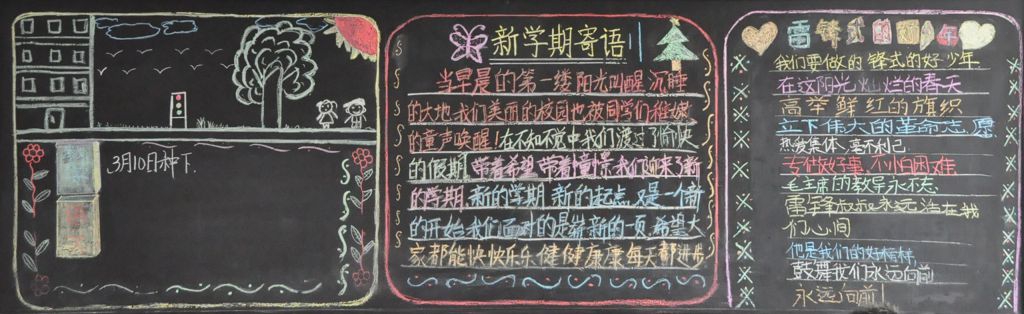 3月10日种下.
新学期寄语
当早晨的第一缕阳光叫醒沉睡
的大地我们美丽的校园也被同学们稚嫩
的童声唤醒!在不知不觉中我们渡过了愉快
的假期.带着希望带着憧憬我们迎来了新
的学期.新的学期.新的起点.又是一个新
的开始.我们面对的是崭新的一页.希望大
家都能快快乐乐健健康康每天都进步
雷锋式的少年
我们要做的锋式的好少年
在这阳光灿烂的春天
高举鲜红的旗织
立下伟大的革命志愿
热爱集体、毫不利己.
专做好事不怕困难
毛主席的教导永记.
雷锋叔叔永远活在我
们心间
他是我们的好榜样,
鼓舞我们永远向前
永远向前!